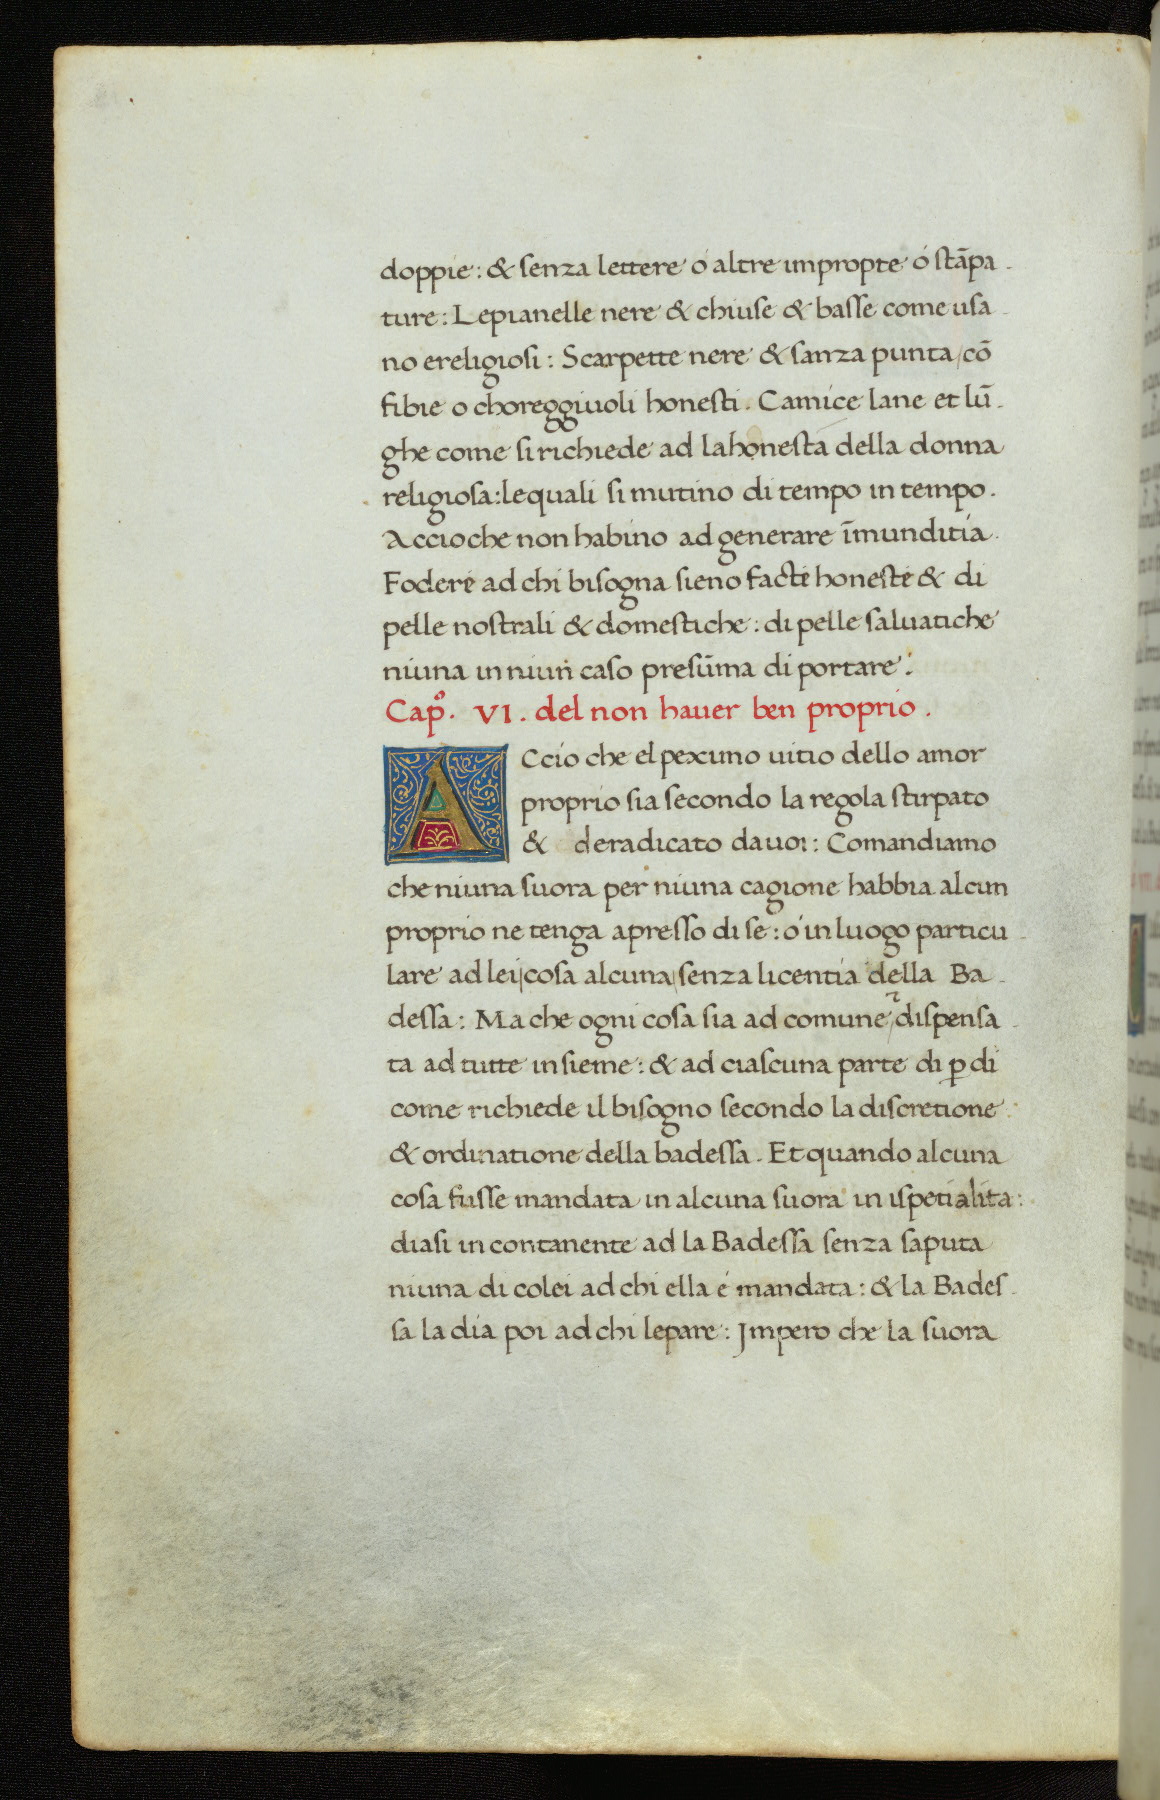 doppie: & senza lettere ó altre impropte ó stāpa-
ture: Le pianelle nere & chiuse & basse come usa-
no e religiosi: Scarpette nere & sanza punta/cō
fibie o choreggiuoli honesti. Camice lane et lū-
ghe come si richiede ad la honesta della donna
religiosa: le quali si mutino di tempo in tempo.
Accio che non habino ad generare īmunditia.
Fodere ad chi bisogna sieno facte honeste & di
pelle nostrali & domestiche: di pelle saluatiche
niuna in niun caso presūma di portare:
Capº. VI. del non hauer ben proprio.
Accio che el pexcimo uitio dello amor
proprio sia secondo la regola stirpato
& deradicato da uoi: Comandiamo
che niuna suora per niuna cagione habbia alcun
proprio ne tenga apresso di se: ó in luogo particu-
lare ad lei/cosa alcuna/senza licentia della Ba-
dessa: Ma che ogni cosa sia ad comune/⁊ dispensa-
ta ad tutte insieme: & ad ciascuna parte di ꝑ di
come richiede il bisogno secondo la discretione
& ordinatione della badessa. Et quando alcuna
cosa fusse mandata in alcuna suora in ispetialita:
diasi incontanente ad la Badessa senza saputa
niuna di colei ad chi ella é mandata: & la Bades-
sa la dia poi ad chi le pare: Impero che la suora